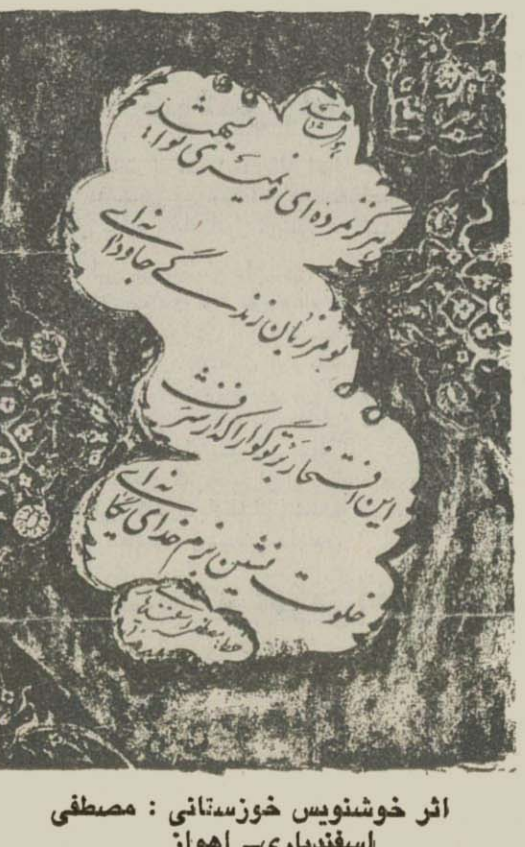 هرگز نمرده ای و نمیری تو ای شهید
تو مرزبان زندگی جاودانه ای
این افتخار بر تو گوارا که از شرف
خلوت نشین بزم خدای یگانه ای
مصطفی اسفندیاری
اثر خوشنویس خوزستانی : مصطفی
اسفندیاری– اهواز